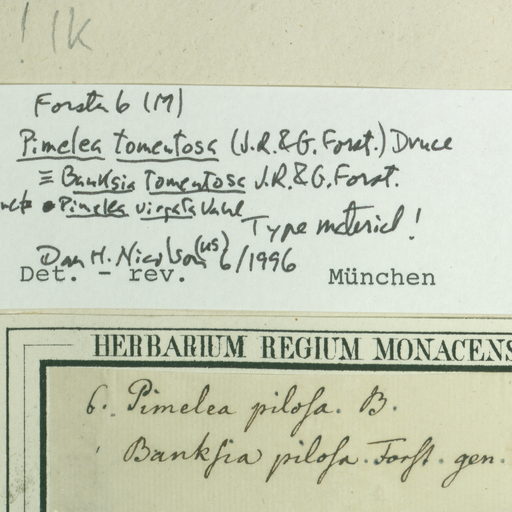 1K
Forster 6 (M)
Pimelea tomentosa (J.R.&G. Forst.) Druce
≡ Banksia tomentosa J.R.&G. Forst.
Pimelea virgata Vahl
Type material!
Dan H. Nicolson (US) 6/1996
Det. - rev. München
HERBARIUM REGIUM MONACENS
6. Pimelea pilosa. B.
Banksia pilosa. Forst. gen.